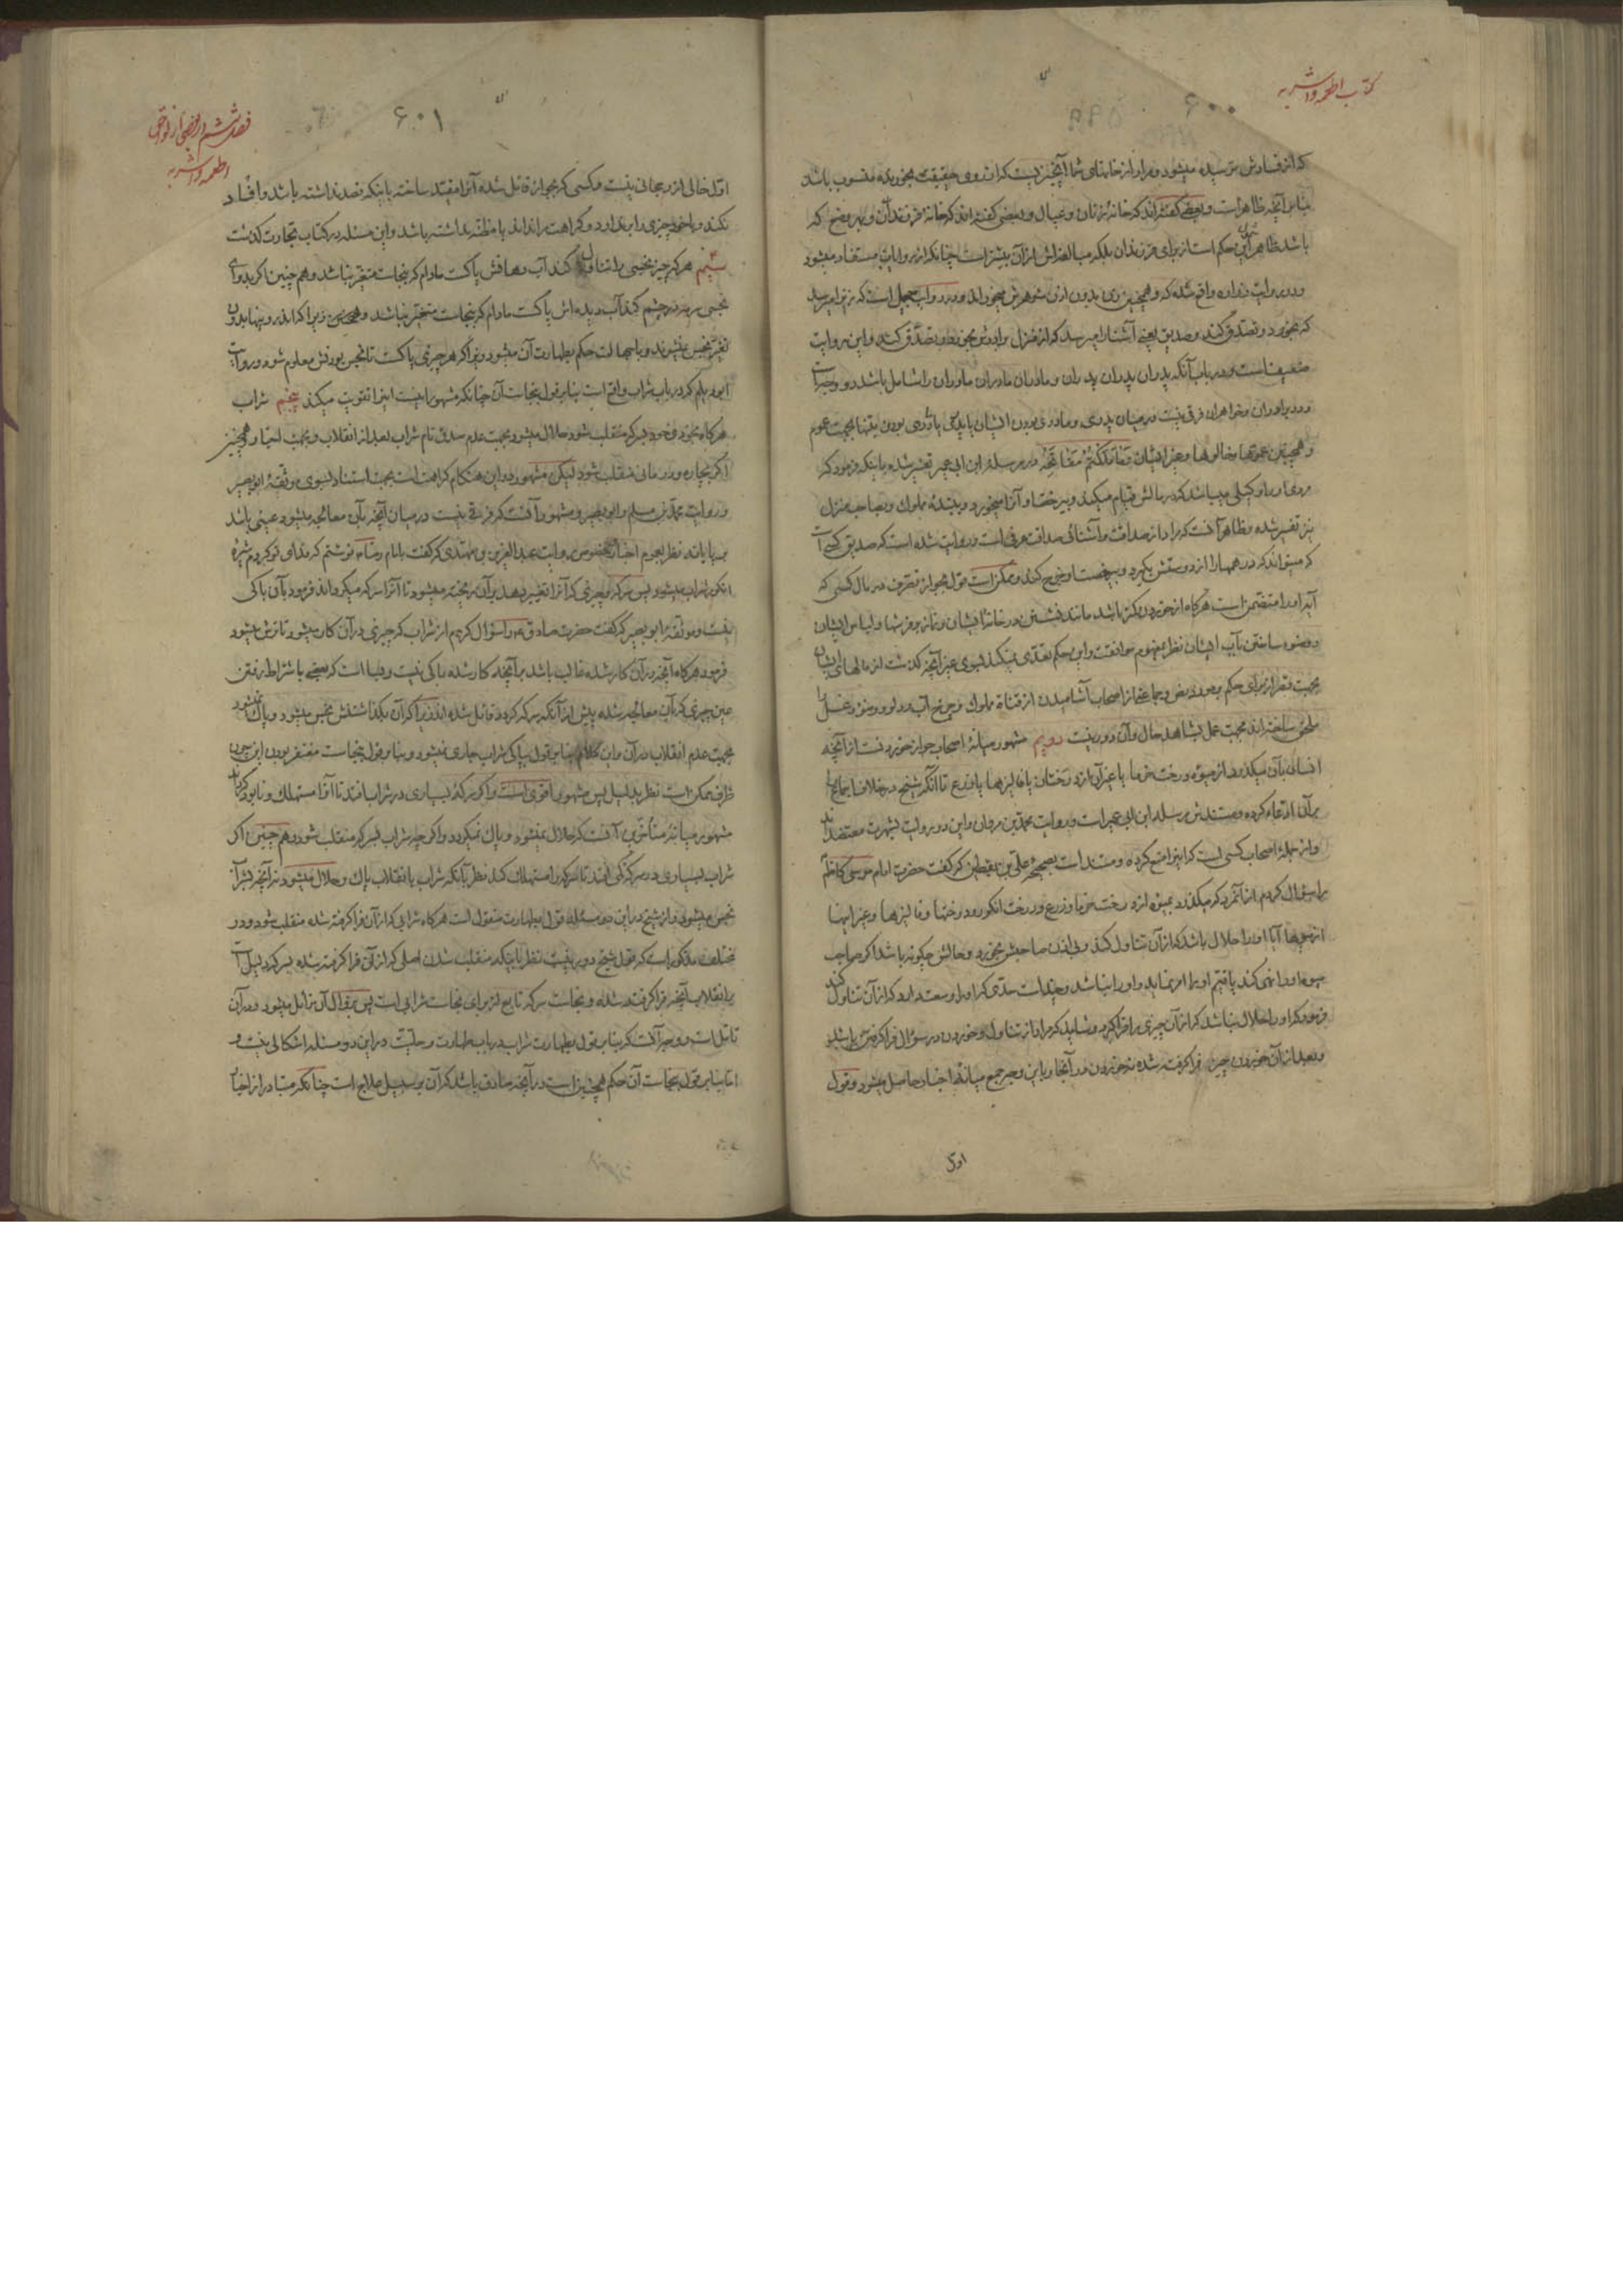 کتاب اطعمه واشربه
۶۰۰
که از فسادش ترسیده میشود ومراد از خانهای شما آنچیز یست که از روی حقیقت بخورنده منسوب باشد
بنابر آنچه ظاهر است وبعضی گفته‌اند که خانه زنان وعیال وبعضی گفته‌اند که خانه فرزندان وبهر وضع که
باشد ظاهر این حکم است از برای فرزندان بلکه مبالغه‌اش از آن بیشتر است چنانکه از روایات مستفاد میشود
ودر روایت زراره واقع شده که وهمچنین زن بدون اذن شوهرش میخوراند ودر روایت جمیل است که زنرا میرسد
که بخورد وتصدق کند وصدیق یعنی آشنا را میرسد که از منزل برادرش بخورد وتصدق کند واین روایت
ضعیف است ودر باب آنکه پدران پدران پدران ومادران مادران مادران را شامل باشد دو وجه است
ودر برادران وخواهران فرقی نیست در میان پدری ومادری بودن ایشان یا پدری یا مادری بودن بتنها بجهت عموم
وهمچنین عموها وخالوها وغیر ایشان وما ملکتم مفاتحه در مرسله ابن ابی عمیر تفسیر شده باینکه فرمود که
مردی اورا وکیلی میباشد که در مالش قیام میکند وبی رخصت او آنرا میخورد وببنده مملوک وبصاحب منزل
نیز تفسیر شده وظاهر آنست که مراد از صداقت وآشنائی صداقت عرفی است وروایت شده است که صدیق کسی است
که میتواند که درهمها را از دوستش بگیرد وبی رخصت او خرج کند وممکن است قول بجواز تصرف در مال کسی که
آیه اورا متضمن است هرگاه از خوردن کمتر باشد مانند نشستن در خانه ایشان ونماز بر فرشها ولباس ایشان
ووضو ساختن بآب ایشان نظر بمفهوم موافقت واین حکم تعدی نمیکند بسوی غیر آنچه گذشت از مالهای ایشان
ملحق ساخته‌اند بجهت عمل بشاهد حال وآن دور نیست دویم مشهور میانه اصحاب جواز خوردنست از آنچه
انسان بآن میگذرد از میوه درخت خرما یا غیر آن از درختان یا فالیزها یا زرع تا آنکه شیخ در خلاف اجماع را
بر آن ادعا کرده ومستندش مرسله ابن ابی عمیر است وروایت محمد بن مروان واین دو روایت بشهرت معتضدند
واز جمله اصحاب کسی است که اینرا منع کرده ومستند است بصحیحه علی بن یقطین که گفت حضرت امام موسی کاظم
را سؤال کردم از آنمرد که میگذرد بمیوه از درخت خرما وزرع ودرخت انگور ودرختها وفالیزها وغیر اینها
از میوها آیا اورا حلال باشد که از آن تناول کند وبی اذن صاحبش بخورد وحالش چگونه باشد اگر صاحب
میوه اورا نهی کند یا قیم اورا امر نماید واورا نباشد وچند است حدی که اورا وسعت دارد که از آن تناول کند
فرمود که اورا حلال نباشد که از آن چیزی را فرا گیرد وشاید که مراد از تناول وخوردن در سؤال فرا گرفتن باشد
وبعد از آن خوردن چیز فرا گرفته شده نه خوردن در آنجا وباین وجه جمع میانه اخبار حاصل میشود وقول
اول
۶۰۱
فصل ششم در بعضی از لواحق
اطعمه واشربه
اول خالی از رجحانی نیست وکسی که بجواز قائل شده آنرا مقید ساخته باینکه قصد نداشته باشد وافساد
نکند وباخود چیزی را بر ندارد وکراهت را نداند یا مظنه نداشته باشد واین مسئله در کتاب تجارت گذشت
سیم هرکه چیز نجسی را تناول کند آب دهانش پاکست مادام که بنجاست متغیر نباشد وهم چنین اگر بدوای
نجسی سرمه در چشم کند آب دیده‌اش پاکست مادام که بنجاست متغیر نباشد
تغیر نجس نمیشوند وبا جهالت حکم بطهارت آن میشود زیرا که هر چیزی پاکست تا نجس بودنش معلوم شود وروایت
ابو دیلم که در باب شراب واقع است بنابر قول بنجاست آن چنانکه مشهور است اینرا تقویت میکند پنجم شراب
هرگاه بخودی خود بسرکه منقلب شود حلال میشود بجهت عدم صدق نام شراب بعد از انقلاب وهمچنین
اگر بچاره ودرمانی منقلب شود لیکن مشهور در این هنگام کراهت است بجهت استناد بسوی موثقه ابو بصیر
وروایت محمد بن مسلم وابو بصیر ومشهور آنست که فرقی نیست در میان آنچه بآن معالجه میشود عینی باشد
نظر بعموم اخبار وخصوص روایت عبد العزیز بن مهتدی که گفت بامام رضا نوشتم که فدای تو گردم شیره
انگور شراب میشود پس سرکه وچیزی که آنرا تغییر دهد بر آن ریخته میشود تا آنرا سرکه میگرداند فرمود بآن باکی
نیست وموثقه ابو بصیر که گفت حضرت صادق را سؤال کردم از شراب که چیزی در آن کار میشود تا ترش میشود
فرمود هرگاه آنچه در آن کار شده غالب باشد بر آنچه کار شده باکی نیست وبسا است که بعضی باشتراط رفتن
عین چیزی که بآن معالجه شده پیش از آنکه سرکه گردد قائل شده‌اند زیرا که آن بگذاشتنش نجس میشود وپاک نمیشود
بجهت عدم انقلاب در آن واین کلام بنابر قول بپاکی شراب جاری نمیشود وبنابر قول بنجاست مغتفر بودن این چون
ظرف ممکن است نظر بدلیل پس مشهور اقوی است واگر سرکه بسیاری در شراب افتد تا آنرا مستهلک ونابود کرداند
مشهور میانه متأخرین آنست که حلال نمیشود وپاک نمیگردد واگرچه شراب بسرکه منقلب شود وهم چنین اگر
شراب بسیاری در سرکه کمی افتد تا سرکه را مستهلک کند نظر بآنکه شراب با انقلاب پاک وحلال میشود نه آنچه بشراب
نجس میشود واز شیخ در این دو مسئله قول بطهارت منقول است هرگاه شرابی که از آن فرا گرفته شده منقلب شود ودر
مختلف مذکور است که قول شیخ دور نیست نظر باینکه منقلب شدن اصلی که از آن فرا گرفته شده بسرکه دلیل است
بر انقلاب آنچه فرا گرفته شده ونجاست سرکه تابع از برای نجاست شرابی است پس بزوال آن زائل میشود ودر آن
تأمل است ووجه آنست که بنابر قول بطهارت شراب در باب طهارت وحلیت در این دو مسئله اشکالی نیست و
اما بنابر قول بنجاست آن حکم همچنین است در آنچه صادق باشد که آن بر سبیل علاج است چنانکه متبادر از اخبار